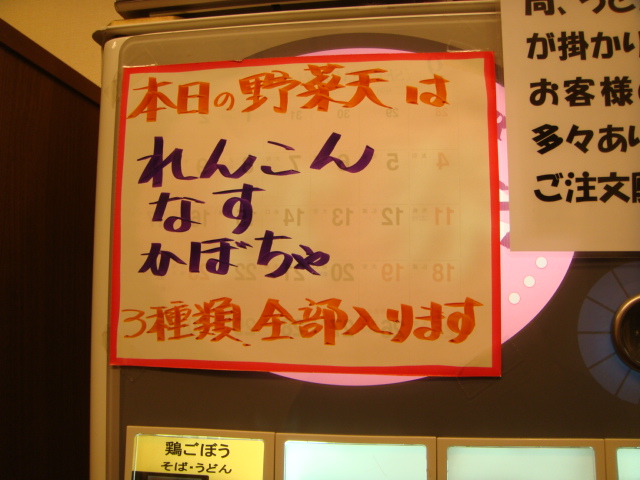 本日の野菜天は
れんこん
なす
かぼちゃ
3種類 全部入ります
が掛かり
お客様
多々あ
ご注文
鶏ごぼう
そば・うどん